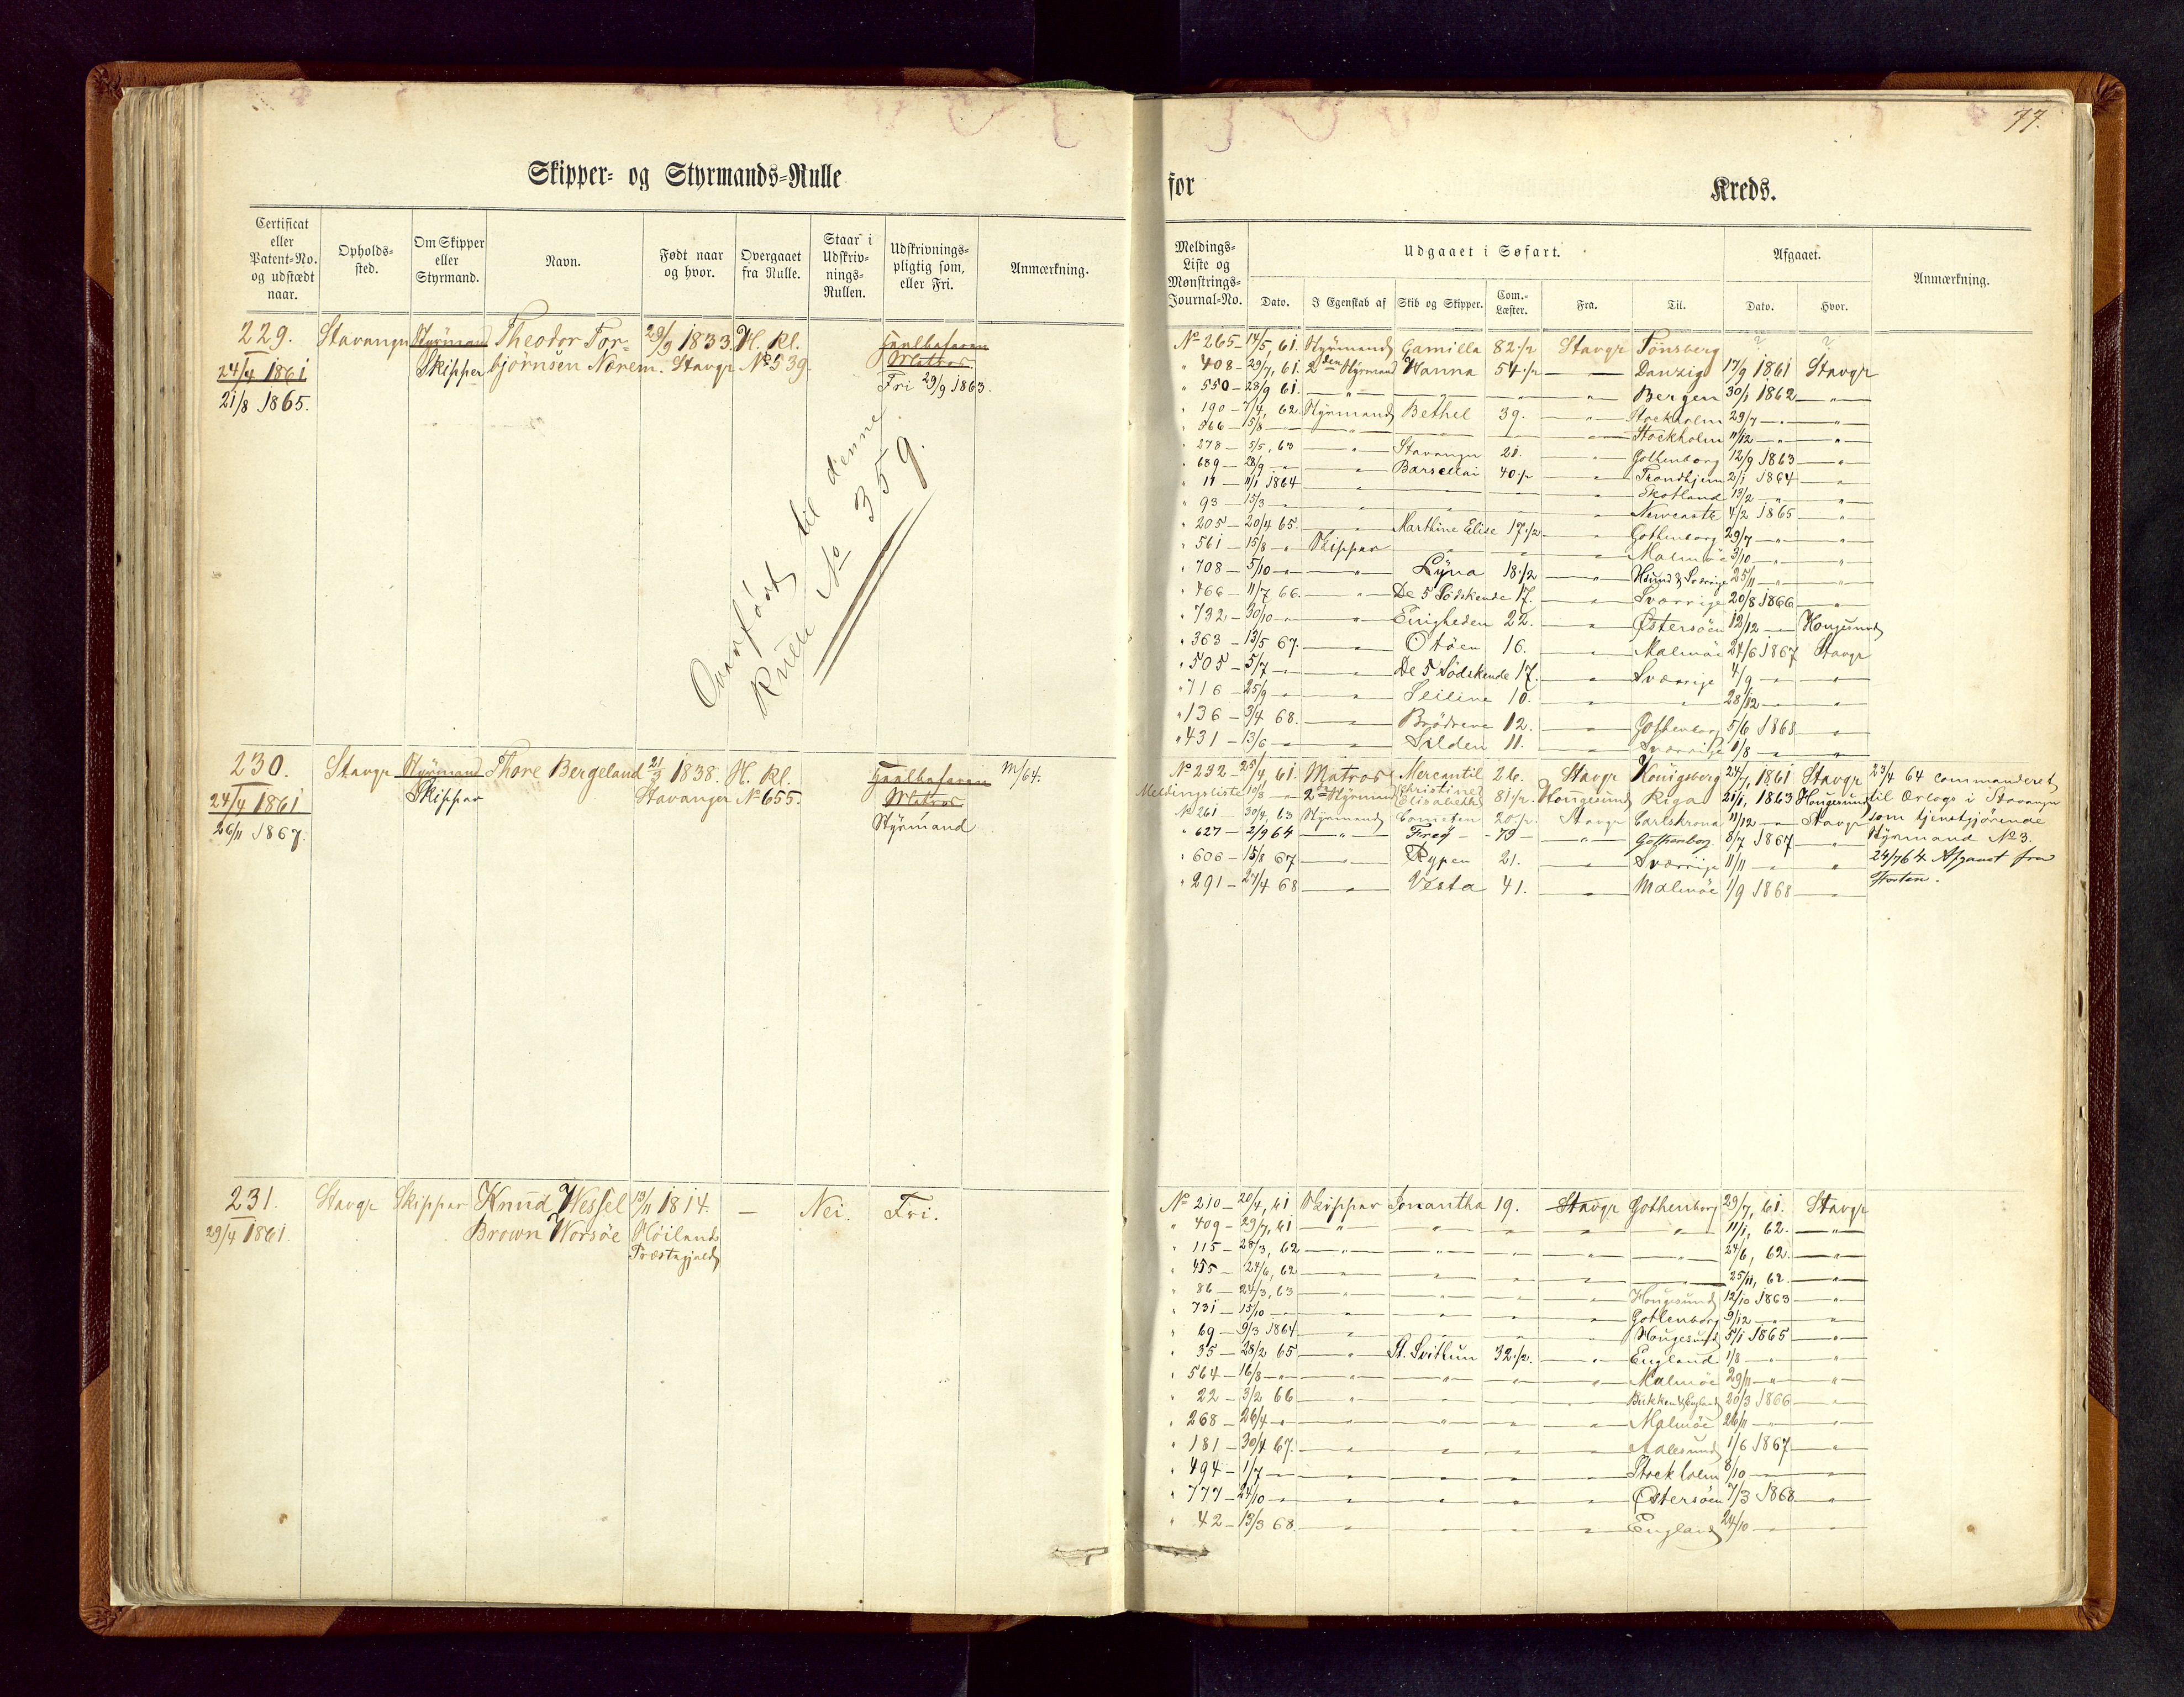 Skipper- og Styrmands-Rulle
Certificat eller Patent-No. og udstædt naar.
Opholds-sted.
Om Skipper eller Styrmand.
Navn.
Født naar og hvor.
Overgaaet fra Rulle.
Staar i Udskriv-nings-Rullen.
Udskrivnings-pligtig som, eller Fri.
Anmærkning.
229. Stavanger Styrmand Theodor Tor- 29/9 1833. H. Kl.
24/4 1861 Skipper bjørnsen Nærem. Stavgr No 539.
Matros
21/8 1865. Fri 29/9 1863.
Overført til denne
Rulle No 359.
230. Stavgr Styrmand Thore Bergeland 21/3 1838. H. Kl. M/64.
24/4 1861 Skipper Stavanger No 655. Matros
26/11 1867. Styrmand
231. Stavgr Skipper Knud Wessel 13/11 1814. — Nei. Fri.
29/4 1861. Brown Worsöe Höilands
Præstegjæld
77.
for Kreds.
Meldings-Liste og Mønstrings-Journal-No.
Udgaaet i Søfart.
Dato. I Egenskab af Skib og Skipper. Com.-Læster. Fra. Til.
Afgaaet.
Dato. Hvor.
Anmærkning.
No 265 — 14/5, 61. Styrmand Camilla 82 1/2 Stavgr Tönsberg ? ?
" 408 — 29/7, 61. 2den Styrmand Nanna 54 1/2 — " — Danzig 17/9 1861 Stavgr
" 550 — 28/9 61. — " — " — " Bergen 30/1 1862 — " —
" 190 — 7/4, 62. Styrmand Bethel 39. " Stockholm 29/7 — " — "
" 566 — 15/8 — " — " — Stockholm 11/12 — " — "
" 278 — 5/5, 63 — " — Stavanger 21. " Gothenborg 12/9 1863 — "
" 689 — 28/9 — " — " — 40 1/2 " Trondhjem 2/1 1864 — "
" 11 — 11/1 1864 — " — " — " Skotland 13/2 — " — "
" 93 — 15/3 — " — " — " Newcastle 4/2 1865 — "
" 205 — 20/4 65. — " — Marthine Elise 17 1/2 " Gothenborg 29/7 — " — "
" 561 — 15/8 — " Skipper — " — " Malmöe 3/10 — " — "
" 708 — 5/10 — " — " — Lyna 18 1/2 — " — 25/11 — " — "
" 466 — 11/7 66. — " — De 5 Södskende 17. — " — Sværrige 20/8 1866 — "
" 732 — 30/10 — " — Enigheden 22. — " — Østersöen 12/12 — Hougesund
" 363 — 13/5 67. — " — Otöen 16. — " — Malmöe 24/6 1867 Stavgr
" 505 — 5/7 — " — De 5 Södskende 17. — " — Sværrige 4/9 — " — "
" 716 — 25/9 — " — 10. — " — " 28/12 — " — "
" 136 — 3/4 68. — " — Brödrene 12. — " — Gothenborg 5/6 1868 — "
" 431 — 13/6 — " — Silden 11. — " — Sværrige 1/8 — " — "
No 232 — 25/4, 61. Matros Mercantil 26. Stavgr Königsberg 24/7, 1861 Stavgr 23/4 64 commanderet
Meldingsliste 10/8 — " 2den Styrmand Christine Elisabeth 81 1/2. Hougesund Riga 21/1, 1863 Hougesund til Orlogs i Stavanger
No 261 — 30/4, 63 Styrmand 20 1/2 Stavgr Carlskrona 11/12 — Stavgr som tjenstgjørende
" 627 — 2/9 64 — " — Frey — 79 — " — Gothenborg. 8/7 1867 — " Styrmand No 3.
" 606 — 15/8 67 — " — Rypen 21. — " — Sværrige 11/11 — " — " 24/7 64 Afgaaet fra
" 291 — 27/4 68 — " — Vesta 41. — " — Malmöe 1/9 1868 — " Horten.
No 210 — 20/4, 61 Skipper Jonantha 19. Stavgr Gothenborg 29/7, 61. Stavgr
" 409 — 29/7, 61 — " — " — " — " — " 11/1, 62. — " —
" 115 — 28/3, 62 — " — " — " — " — " 24/6, 62. — " —
" 455 — 24/6, 62 — " — " — " — " — " 25/11, 62 — " —
" 86 — 24/3, 63 — " — " — " — " Hougesund 12/10 1863 — "
" 731 — 15/10 — " — " — " — " Gothenborg 9/12 — " — "
" 69 — 9/3 1864 — " — " — " — " Hougesund 5/1 1865 — "
" 35 — 28/2 65 — " — St. Svithun 32 1/2. — " — England 1/8 — " — "
" 564 — 16/8 — " — " — " — " — Malmöe 29/11 — " — "
" 22 — 3/2 66 — " — " — " — " 20/3 1866 — "
" 268 — 26/4 — " — " — " — " Malmöe 26/11 — " — "
" 181 — 30/4 67. — " — " — " — " Aalesund 1/6 1867 — "
" 494 — 1/7 — " — " — " — " Stockholm 8/10 — " — "
" 777 — 24/10 — " — " — " — " Østersöen 7/3 1868 — "
" 42 — 13/3 68 — " — " — " — " England 24/10 — " — "